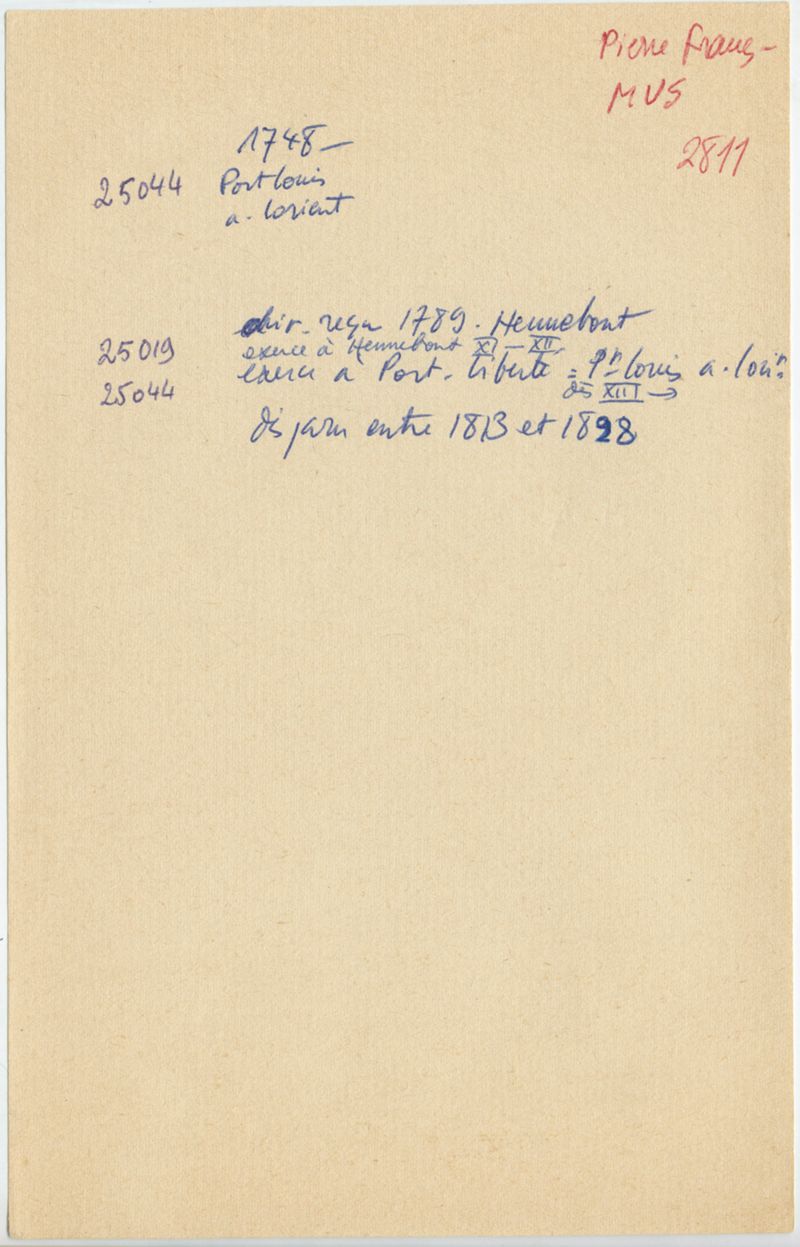 Pierre Franç-
MVS
2811
1748-
25044 Port Louis
a. Lorient
chir. reçu 1789. Hennebont
25019 exerce à Hennebont XI - XII
25044 exerce à Port-Liberté = Pt Louis a. Lorit
dès XIII →
disparu entre 1813 et 1828